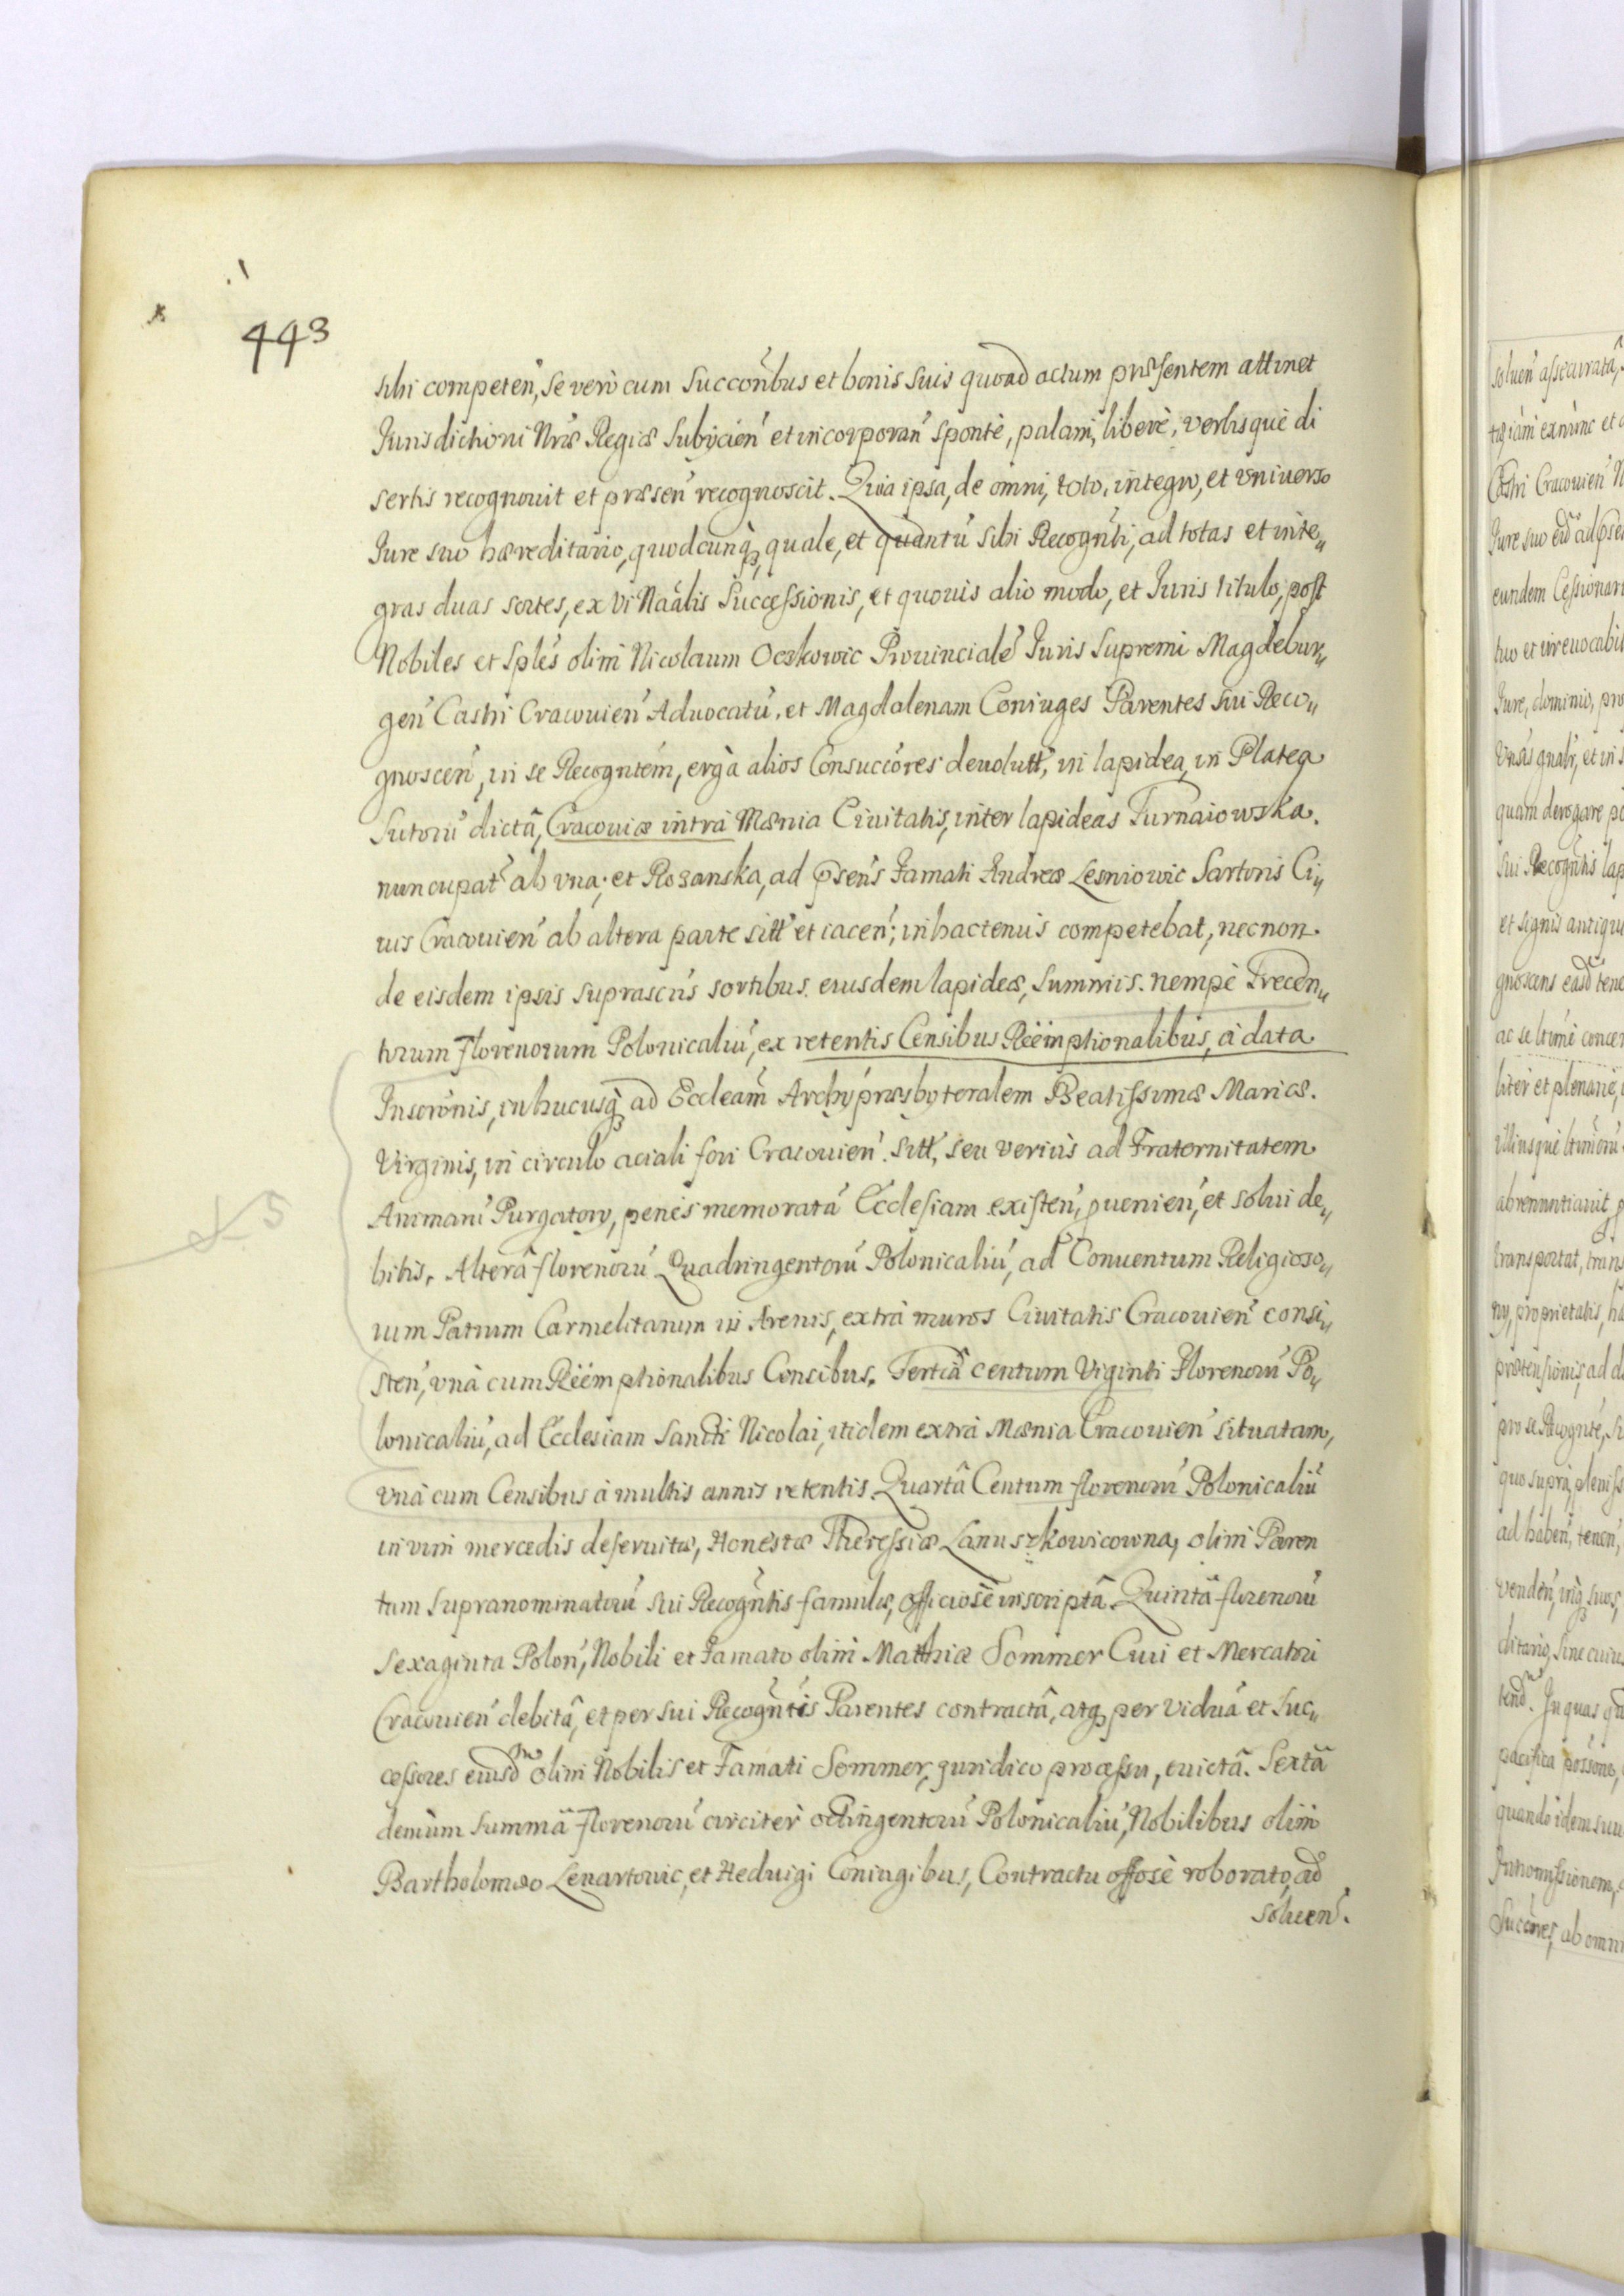 443
sibi competen̄, se verò cum Succōribus et bonis suis quoad actum præsentem attinet
Jurisdictioni Nr̄æ Regiæ Subÿcien̄ et incorporan̄ spontè, palam, liberè, verbisquè di
sertis recognouit et præsen̄ recognoscit. Quia ipsa, de omni, toto, integro, et vniuerso
Jure suo hæreditario, quodcunq₃, quale, et quantū sibi Recogn̄ti, ad totas et inte„
gras duas sortes, ex vi Naālis Successionis, et quouis alio modo, et Juris titulo, post
Nobiles et Splēs olim Nicolaum Oczkowic Prouincialē Juris Supremi Magdebur„
gen̄ Castri Cracouien̄ Aduocatū, et Magdalenam Coniuges Parentes sui Reco„
gnoscen̄, in se Recogn̄tem, ergà alios Consuccōres deuolutt̄, in lapidea, in Platea
Sutorū dictâ, Cracouiæ intrà Mænia Ciuitatis, inter lapideas Turnaiowska
nuncupat̄ ab vna, et Rozanska, ad p̄sens Famati Andreæ Lesniowic Sartoris Ci„
uis Cracouien̄ ab altera parte sitt̄ et iacen̄; in hactenus competebat, necnon
de eisdem ipsis suprascr̄is sortibus eiusdem lapideæ, Summis. nempè Trecen„
torum Florenorum Polonicaliū, ex retentis Censibus Rëemptionalibus, à data
Inscrōnis, in hucusq₃ ad Eccleām Archÿpræsbyteralem Beatissimæ Mariæ
Virginis, in circulo aciali fori Cracouien̄. Sitt̄, seu veriùs ad Fraternitatem
Animarū Purgatorÿ, penès memoratā Ecclesiam existen̄, ꝓuenien̄, et solui de„
bitis. Alterâ florenorū Quadringentorū Polonicaliū, ad Conuentum Religioso„
rum Patrum Carmelitarum in Arenis, extrà muros Ciuitatis Cracouien̄ consi„
sten̄, vnà cum Rëemptionalibus Censibus. Tertiâ centum Viginti Florenorū Po„
lonicaliū, ad Ecclesiam Sancti Nicolai, itidem extrà Mænia Cracouien̄ situatam,
vnà cum Censibus à multis annis retentis. Quartâ Centum florenorū Polonicaliū
in vim mercedis deseruitæ, Honestæ Theressiæ Januszkowicowna, olim Paren
tum supranominatorū sui Recogn̄tis famulæ, officiosè inscriptâ. Quintâ florenorū
Sexaginta Polon̄, Nobili et Famato olim Matthiæ Sommer Ciui et Mercatori
Cracouien̄ debitâ, et per sui Recogn̄tis Parentes contractâ, atq₃ per viduā et Suc„
cessores eiusdm̄ olim Nobilis et Famati Sommer, juridico processu, euictâ. Sextâ
demùm summâ Florenorū circitèr octingentorū Polonicaliū, Nobilibus olim
Bartholomæo Lenartowic, et Heduigi Coniugibus, Contractu offosè roborato, ad
soluen̄.